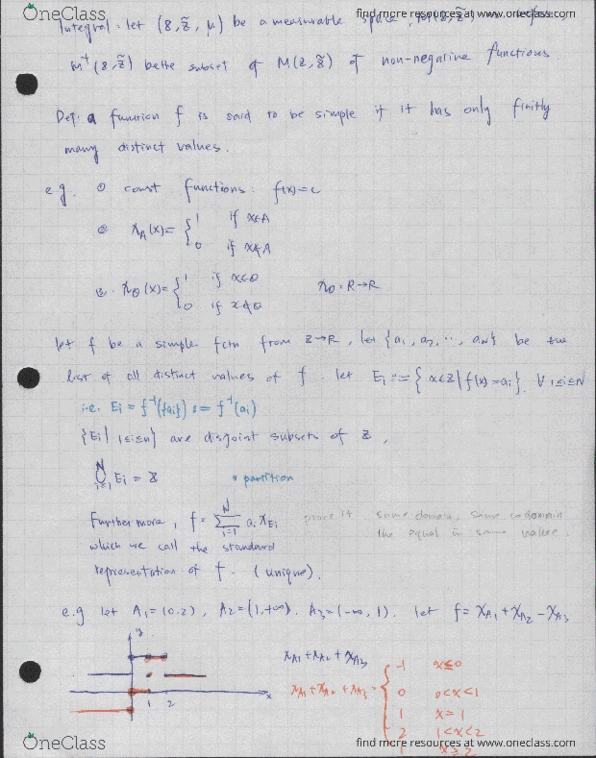 OneClass
find more resources at www.oneclass.com
Integral: let (Z, Z̃, μ) be a measurable space,
M⁺(Z, Z̃) be the subset of M(Z, Z̃) of non-negative functions
Def: a function f is said to be simple if it has only finitly
many distinct values.
e.g. ① const functions: f(x)=c
② χ_A(x)= { 1 if x∈A
0 if x∉A
③ χ_Q(x)= { 1 if x∈Q
0 if x∉Q
χ_Q: R→R
let f be a simple fctn from Z→R, let {a₁, a₂, ..., a_N} be the
list of all distinct values of f. let E_i := {x∈Z | f(x)=a_i}. ∀ 1≤i≤N
i.e. E_i = f⁻¹({a_i}) := f⁻¹(a_i)
{E_i | 1≤i≤n} are disjoint subsets of Z,
∪_{i=1}^{N} E_i = Z
partition
Furthermore, f = Σ_{i=1}^{N} a_i χ_{E_i}
prove it same domain, same codomain
the equal in same value.
which we call the standard
representation of f. (unique).
e.g let A₁=(0,2), A₂=(1,+∞), A₃=(-∞,1). let f=χ_{A₁}+χ_{A₂}-χ_{A₃}
y
x
1 2
χ_{A₁}+χ_{A₂}+χ_{A₃}
χ_{A₁}+χ_{A₂}+χ_{A₃}= { -1 x≤0
0 0<x<1
1 x=1
2 1<x<2
1 x≥2
OneClass
find more resources at www.oneclass.com